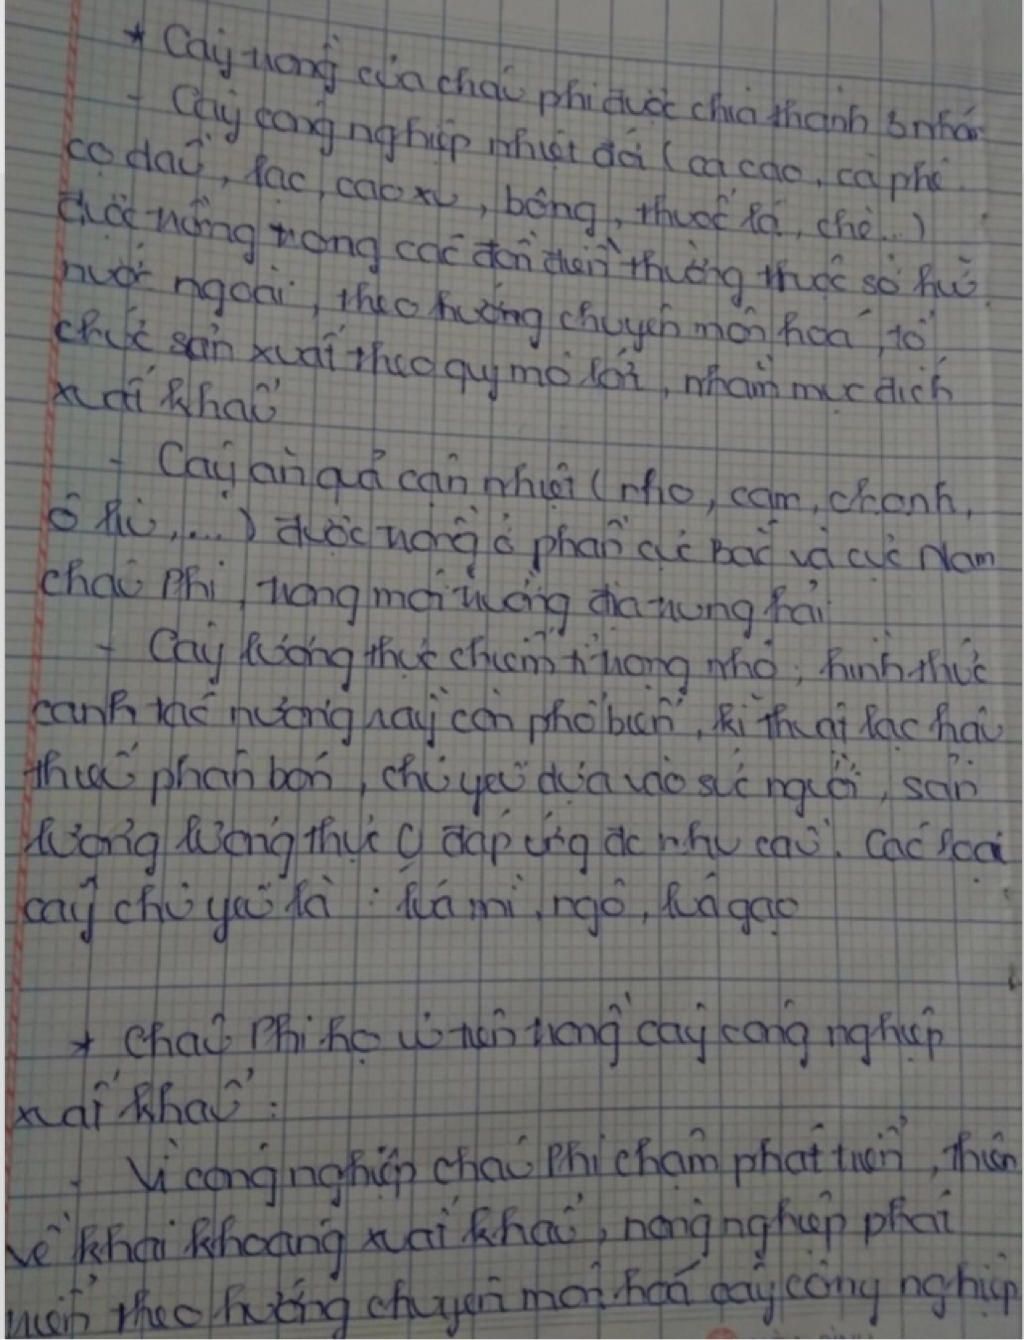 * Cây trồng của châu phi được chia thành 3 nhóm
- Cây công nghiệp nhiệt đới (ca cao, cà phê
cọ dầu, lạc, cao xu, bông, thuốc lá, chè...)
được trồng trong các đồn điền thường thuộc sở hữu
nước ngoài, theo hướng chuyên môn hoá, tổ
chức sản xuất theo quy mô lớn, nhằm mục đích
xuất khẩu
- Cây ăn quả cận nhiệt (nho, cam, chanh,
ô liu,....) được trồng ở phần cực Bắc và cực Nam
châu Phi, trong môi trường địa trung hải
- Cây lương thực chiếm tỉ trọng nhỏ, hình thức
canh tác nương rẫy còn phổ biến, kĩ thuật lạc hậu
thiếu phân bón, chủ yếu dựa vào sức người, sản
lượng lương thực đáp ứng đc nhu cầu. Các loại
cây chủ yếu là : lúa mì, ngô, lúa gạo
* Châu Phi họ ưu tiên trồng cây công nghiệp
xuất khẩu :
- Vì công nghiệp châu Phi chậm phát triển, thiên
về khai khoáng xuất khẩu, nông nghiệp phát
triển theo hướng chuyên môn hoá cây công nghiệp